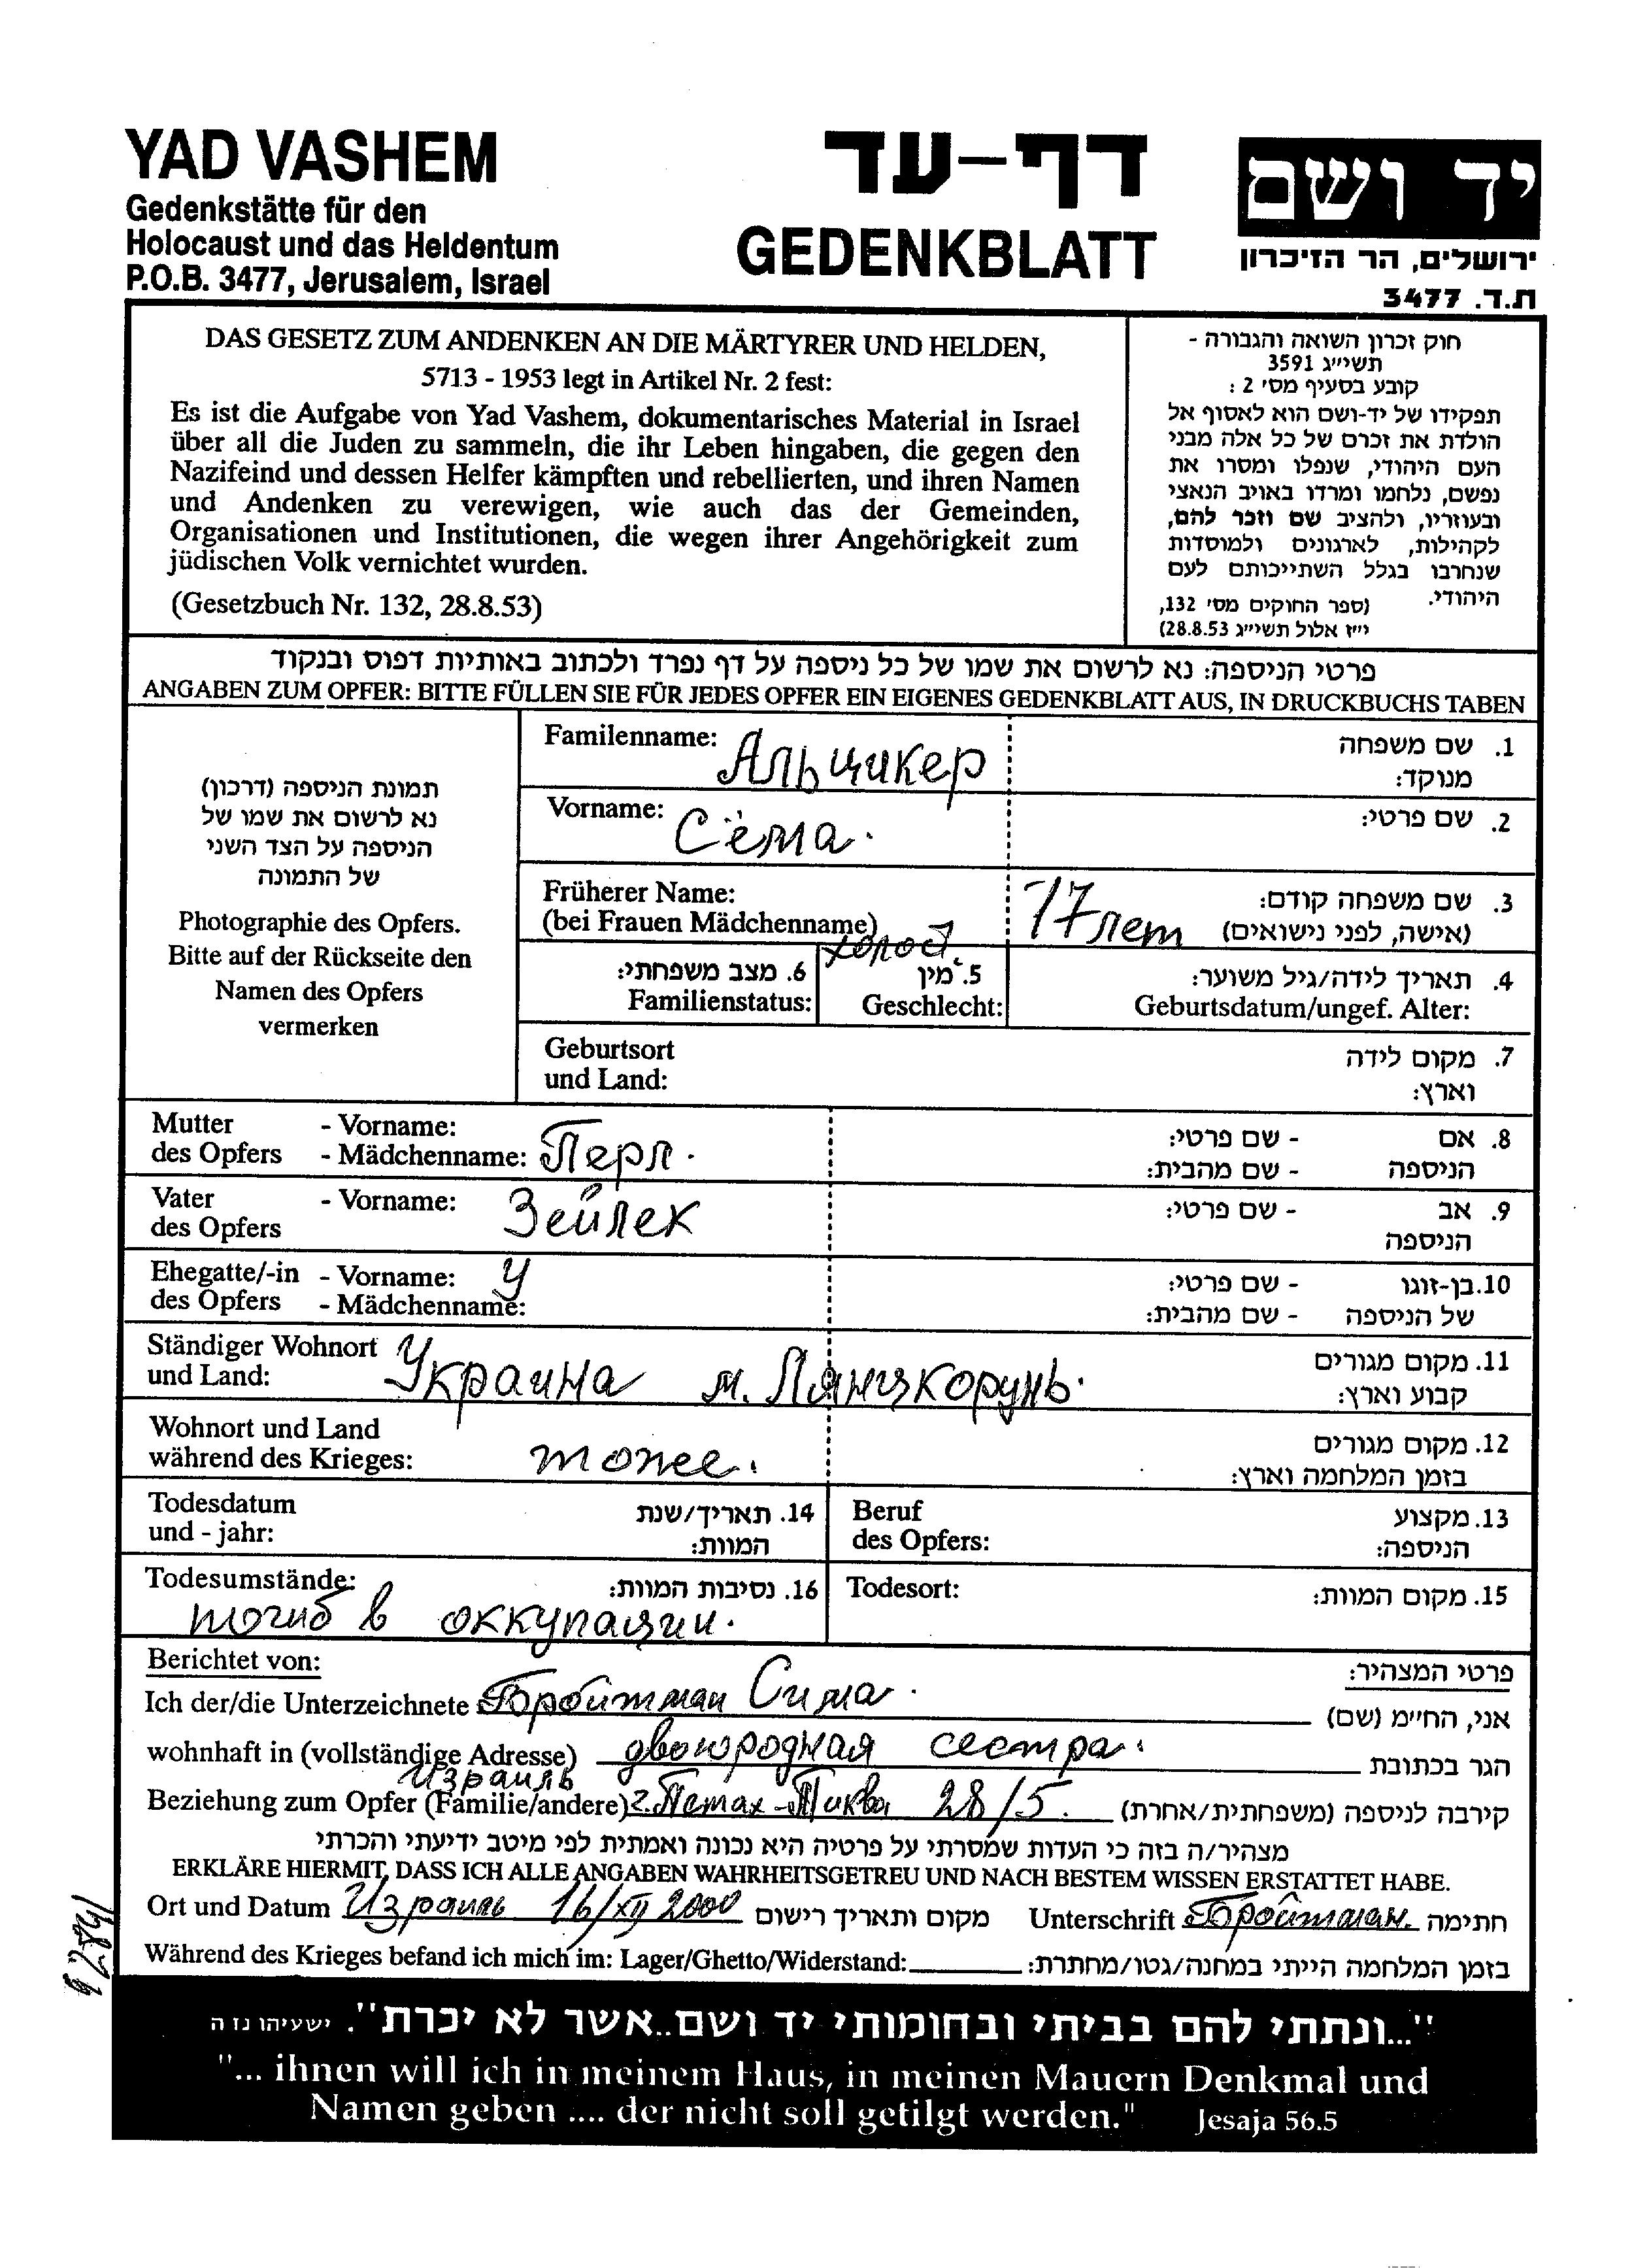 YAD VASHEM
Gedenkstätte für den
Holocaust und das Heldentum
P.O.B. 3477, Jerusalem, Israel
דף-עד
GEDENKBLATT
יד ושם
ירושלים, הר הזיכרון
ת.ד. 3477
DAS GESETZ ZUM ANDENKEN AN DIE MÄRTYRER UND HELDEN,
5713 - 1953 legt in Artikel Nr. 2 fest:
Es ist die Aufgabe von Yad Vashem, dokumentarisches Material in Israel
über all die Juden zu sammeln, die ihr Leben hingaben, die gegen den
Nazifeind und dessen Helfer kämpften und rebellierten, und ihren Namen
und Andenken zu verewigen, wie auch das der Gemeinden,
Organisationen und Institutionen, die wegen ihrer Angehörigkeit zum
jüdischen Volk vernichtet wurden.
(Gesetzbuch Nr. 132, 28.8.53)
חוק זכרון השואה והגבורה -
תשי״ג 3591
קובע בסעיף מס׳ 2 :
תפקידו של יד-ושם הוא לאסוף אל
הולדת את זכרם של כל אלה מבני
העם היהודי, שנפלו ומסרו את
נפשם, נלחמו ומרדו באויב הנאצי
ובעוזריו, ולהציב שם וזכר להם,
לקהילות, לארגונים ולמוסדות
שנחרבו בגלל השתייכותם לעם
היהודי.
(ספר החוקים מס׳ 132,
י״ז אלול תשי״ג 28.8.53)
פרטי הניספה: נא לרשום את שמו של כל ניספה על דף נפרד ולכתוב באותיות דפוס ובנקוד
ANGABEN ZUM OPFER: BITTE FÜLLEN SIE FÜR JEDES OPFER EIN EIGENES GEDENKBLATT AUS, IN DRUCKBUCHS TABEN
תמונת הניספה (דרכון)
נא לרשום את שמו של
הניספה על הצד השני
של התמונה
Photographie des Opfers.
Bitte auf der Rückseite den
Namen des Opfers
vermerken
Familenname: Альцикер 1. שם משפחה
מנוקד:
Vorname: Сёма. 2. שם פרטי:
Früherer Name: 3. שם משפחה קודם:
(bei Frauen Mädchenname) 17 лет (אישה, לפני נישואים)
холост.
6. מצב משפחתי: 5. מין 4. תאריך לידה/גיל משוער:
Familienstatus: Geschlecht: Geburtsdatum/ungef. Alter:
Geburtsort 7. מקום לידה
und Land: וארץ:
Mutter - Vorname: 8. אם - שם פרטי:
des Opfers - Mädchenname: Перл. הניספה - שם מהבית:
Vater - Vorname: Зейлек 9. אב - שם פרטי:
des Opfers הניספה
Ehegatte/-in - Vorname: У 10.בן-זוגו - שם פרטי:
des Opfers - Mädchenname: של הניספה - שם מהבית:
Ständiger Wohnort 11. מקום מגורים
und Land: Украина м. Лянцкорунь. קבוע וארץ:
Wohnort und Land 12. מקום מגורים
während des Krieges: тоже. בזמן המלחמה וארץ:
Todesdatum 14. תאריך/שנת Beruf 13. מקצוע
und - jahr: המוות: des Opfers: הניספה:
Todesumstände: 16. נסיבות המוות: Todesort: 15. מקום המוות:
погиб в оккупации.
Berichtet von: פרטי המצהיר:
Ich der/die Unterzeichnete Бройтман Сима. אני, החי״מ (שם)
wohnhaft in (vollständige Adresse) двоюродная сестра. הגר בכתובת
Израиль
Beziehung zum Opfer (Familie/andere) г. Петах-Тиква 28/5. קירבה לניספה (משפחתית/אחרת)
מצהיר/ה בזה כי העדות שמסרתי על פרטיה היא נכונה ואמתית לפי מיטב ידיעתי והכרתי
ERKLÄRE HIERMIT, DASS ICH ALLE ANGABEN WAHRHEITSGETREU UND NACH BESTEM WISSEN ERSTATTET HABE.
Ort und Datum Израиль 16/XII 2000 מקום ותאריך רישום Unterschrift Бройтман. חתימה
Während des Krieges befand ich mich im: Lager/Ghetto/Widerstand: בזמן המלחמה הייתי במחנה/גטו/מחתרת:
"...ונתתי להם בביתי ובחומותי יד ושם..אשר לא יכרת". ישעיהו נז ה
"... ihnen will ich in meinem Haus, in meinen Mauern Denkmal und
Namen geben .... der nicht soll getilgt werden." Jesaja 56.5